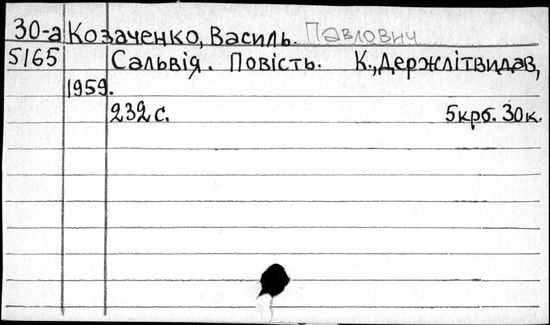 30-а Козаченко, Василь. Павлович
5165 Сальвія. Повість. К., Держлітвидав,
1959.
232 с. 5 крб. 30 к.